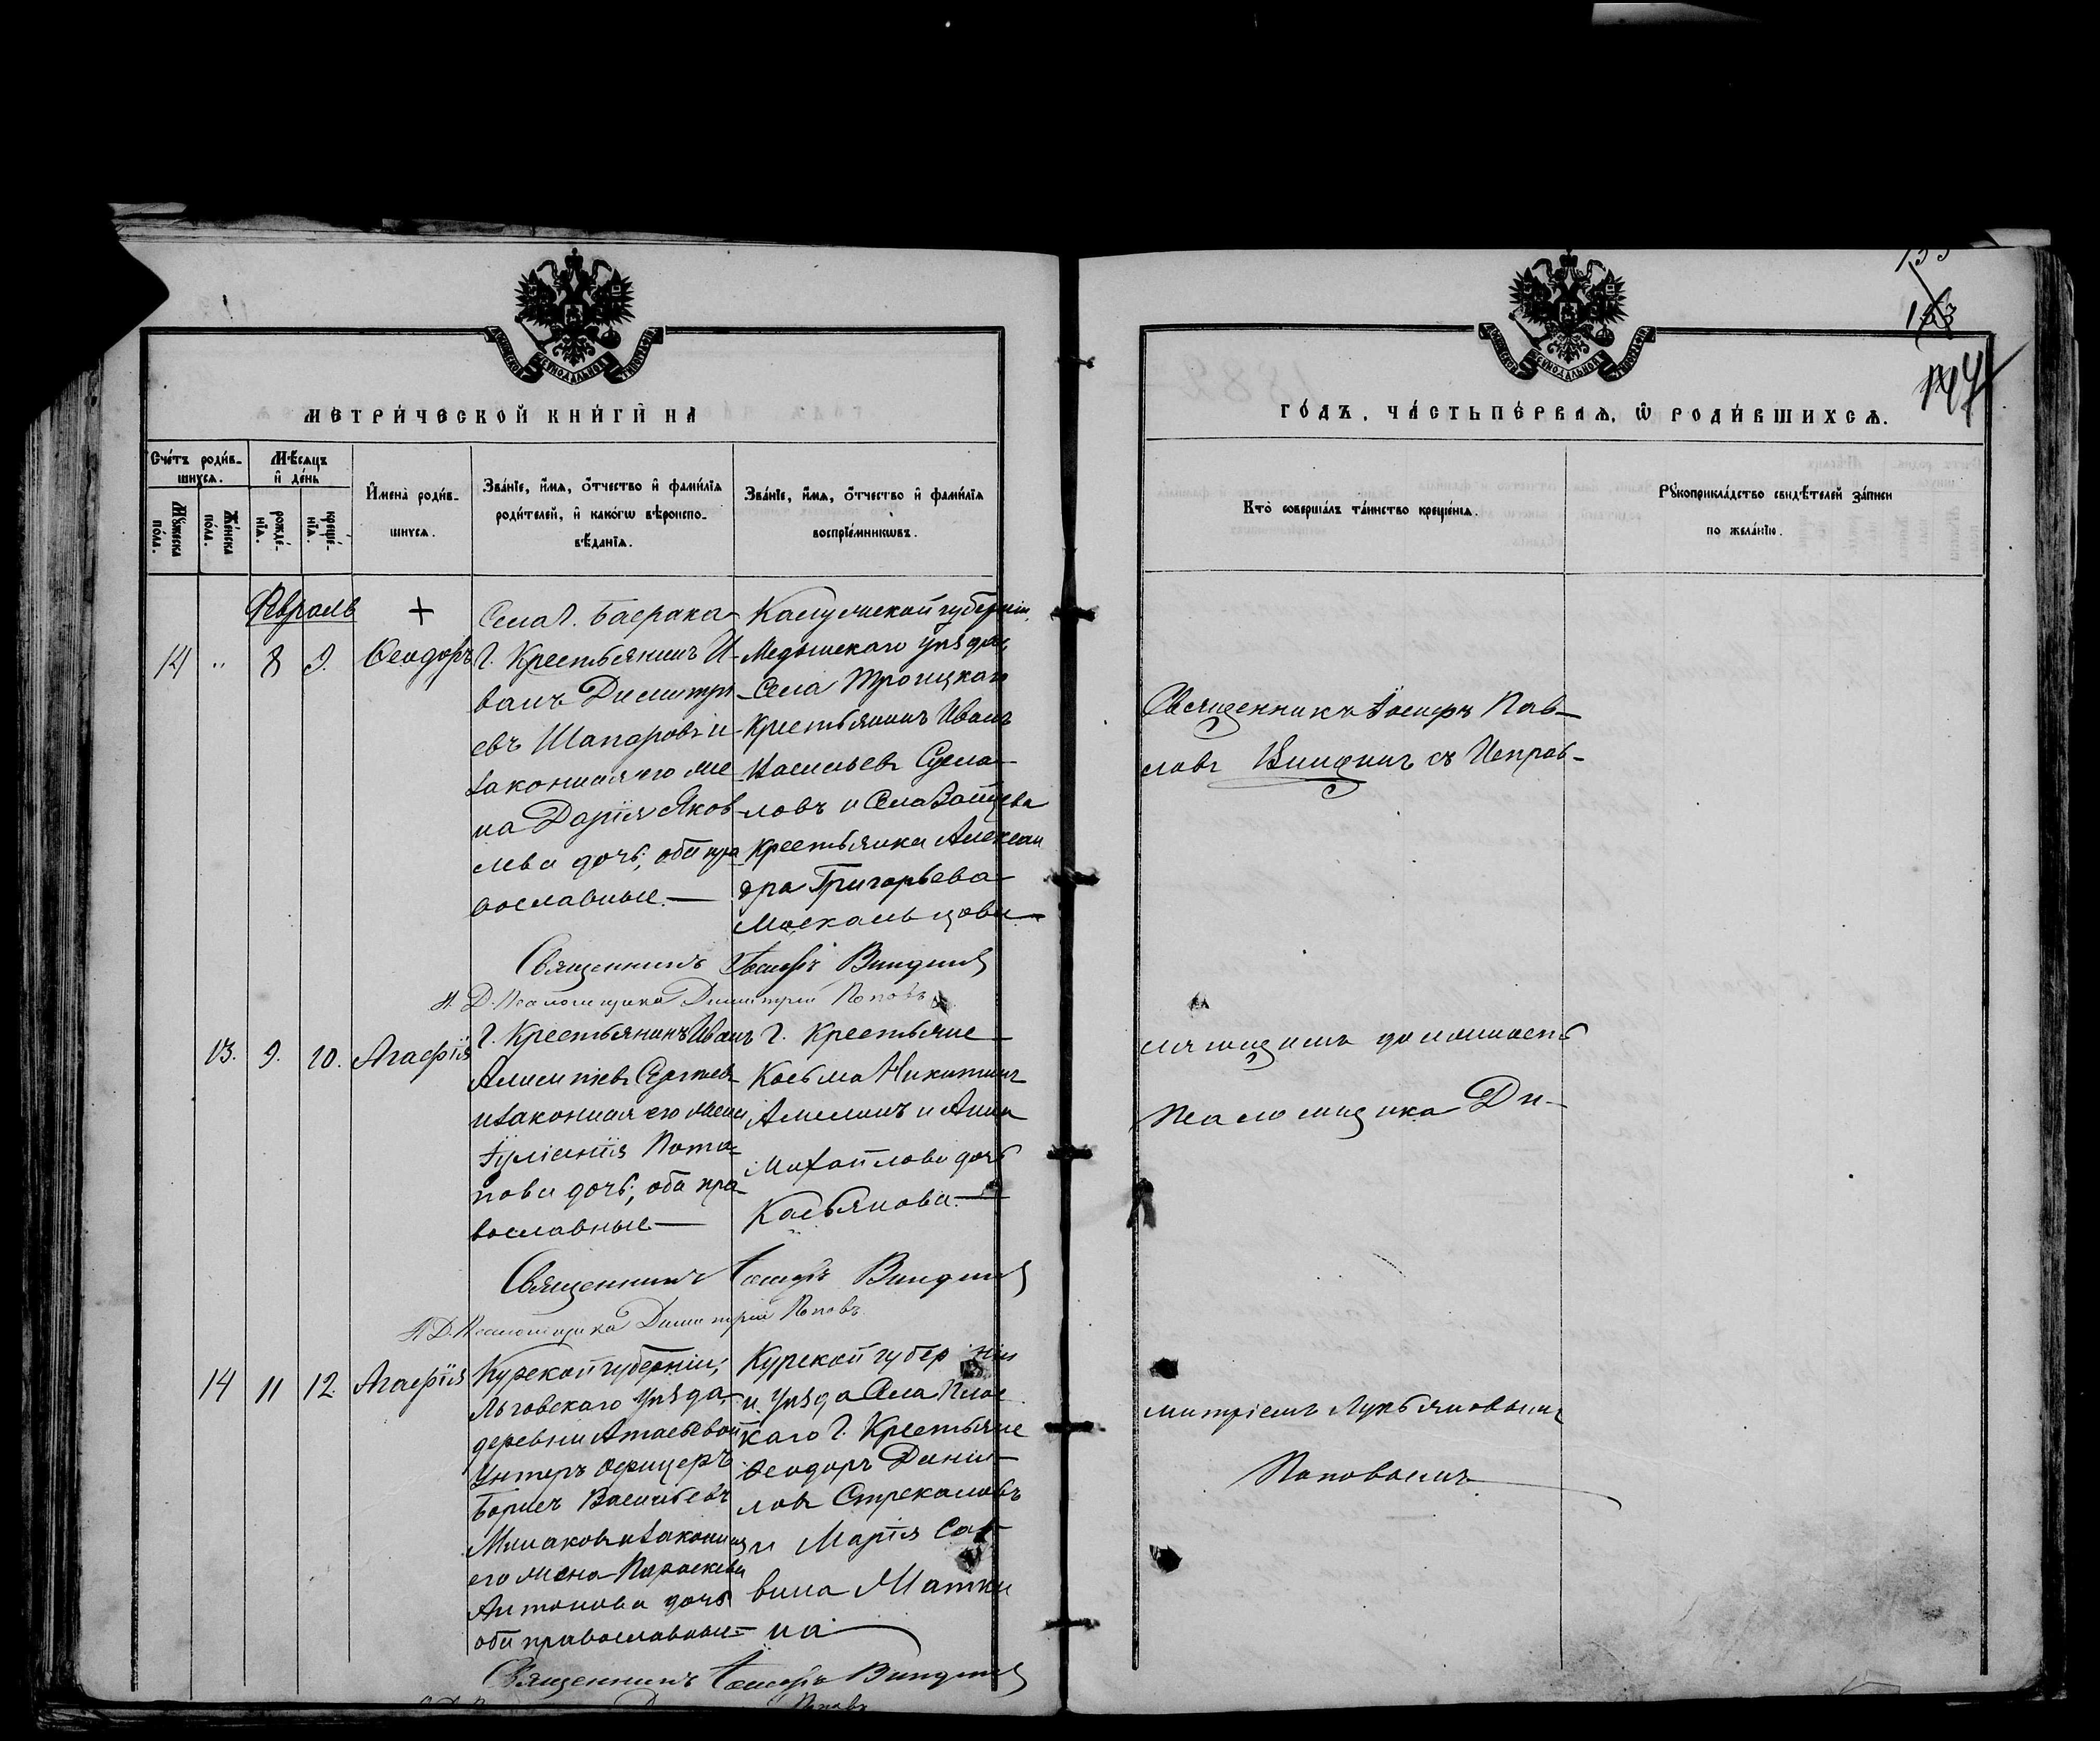 МЕТРИ́ЧЕСКОЙ КНИ́ГИ НА
Сче́тъ роди́в-
шихсѧ.
Мѣ́сѧцъ
и҆ де́нь
И҆мена̀ роди́в-
шихсѧ.
Зва́нїе, и҆́мѧ, ѻ҆́тчество и҆ фами́лїѧ
роди́телей, и҆ како́гѡ вѣроиспо-
вѣ́данїѧ.
Зва́нїе, и҆́мѧ, ѻ҆́тчество и҆ фами́лїѧ
воспрїе́мникѡвъ.
Мꙋ́жеска
по́ла.
Же́нска
по́ла.
рожде́-
нїѧ.
креще́-
нїѧ.
Февраль
+
14 " 8 9. Ѳеодоръ
Г. Крестьянинъ И-
ванъ Димитрі-
евъ Шапаровъ и
законная его же
на Дарія Яков
лева дочь; оба пра
вославные.—
Калужской губерніи,
Медынскаго уѣзда,
Села Троицкаго
Крестьянинъ Иванъ
ловъ и Села Зайцева
крестьянка Алексан
дра Григорьева
Москальцова—
Священникъ Іосифъ Виндинъ
И. Д. Псаломщика Димитрій Поповъ
13. 9. 10. Агафія
Г. Крестьянинъ Иванъ
и законная его жена
Іуліанія Пота-
пова дочь; оба пра-
вославные—
Г. Крестьяне
Косьма Никитинъ
Амелинъ и Анна
Михайлова дочь
Касьянова.—
Священникъ Іосифъ Виндинъ
И. Д. Псаломщика Димитрій Поповъ.
14 11 12. Агафія
Курской губерніи;
Льговскаго Уѣзда,
деревни
Унтеръ офицеръ
Борисъ Васильевъ
Минаковъ и законная
его жена Параскева
Антонова дочь
оба православные—
Курской губерніи
и Уѣзда Села Плос
каго Г. Крестьяне
Ѳеодоръ Дани-
ловъ Стрекаловъ
и Марія Сав-
вина Шатки
на
Священникъ Іосифъ Виндинъ
Поповъ
ГО́ДЪ. ЧА́СТЬ ПЕ́РВАѦ, Ѡ҆ РОДИ́ВШИХСѦ.
Кто̀ соверша́лъ та́инство креще́нїѧ.
Рꙋкоприкла́дство свидѣ́телей за́писи
по жела́нїю.
Священникъ Іосифъ Пав-
ловъ Виндинъ съ Исправ-
ляющимъ должность
Псаломщика Ди-
митріемъ Лукьяновымъ
Поповымъ